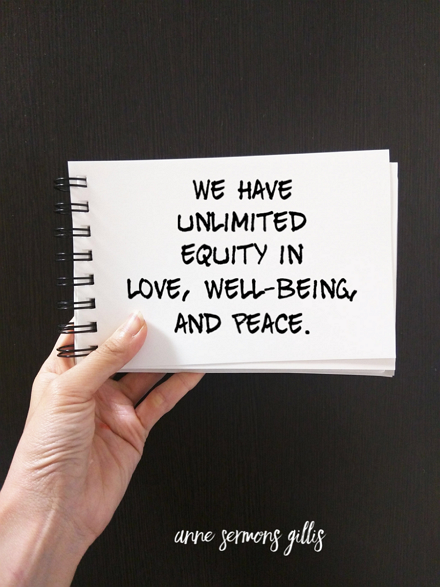 WE HAVE
UNLIMITED
EQUITY IN
LOVE, WELL-BEING,
AND PEACE.
anne sermons gillis